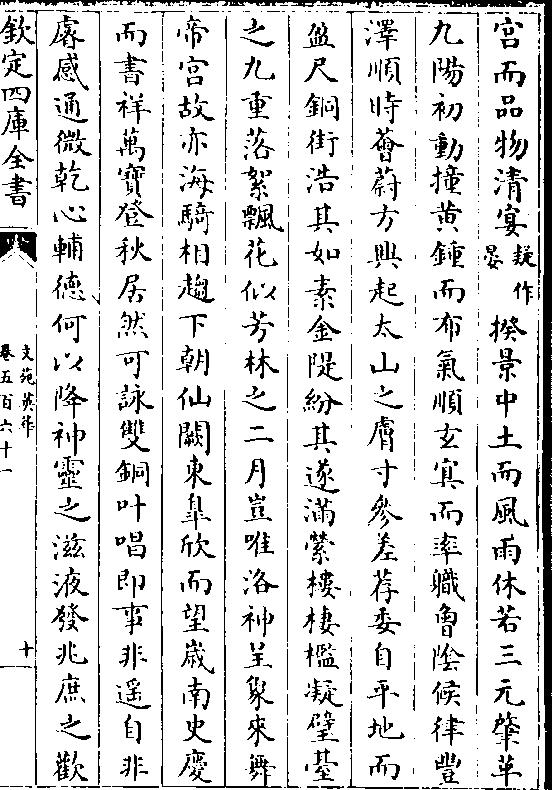 宫而品物清宴疑作晏揆景中土而風雨休若三元肇革
九陽初動撞黄鍾而布氣順玄冥而率職曾陰候律豐
澤順時薈蔚方興起太山之膚寸參差荐委自平地而
盈尺銅街浩其如素金隄紛其遂滿縈樓棲檻凝璧臺
之九重落絮飄花似芳林之二月豈唯洛神呈象來舞
帝宫故亦海騎相趨下朝仙闕東臯欣而望歲南史慶
而書祥萬寶登秋居然可詠雙銅叶唱即事非遥自非
䖏感通微乾心輔德何以降神靈之滋液發兆庶之歡
欽定四庫全書
文苑英華
卷五百六十一
十